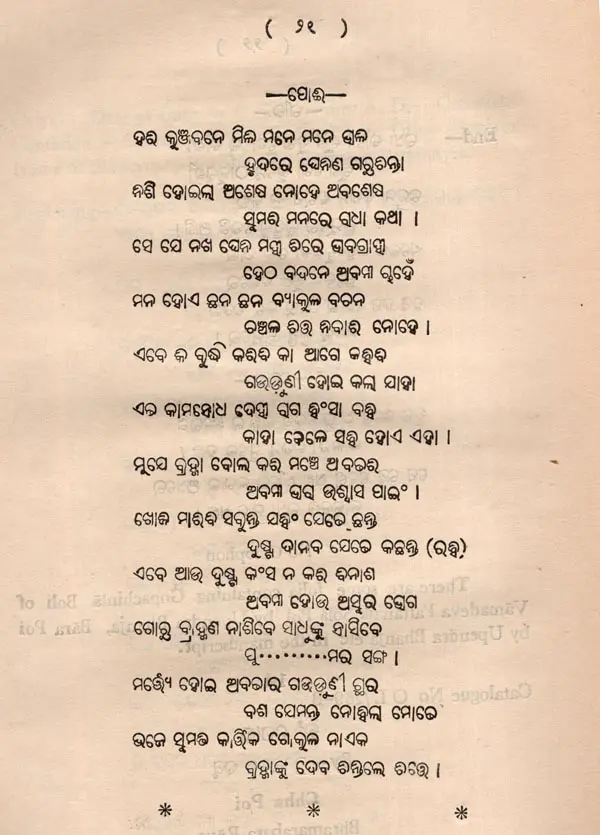 ( ୨୧ )
—ପୋଇ—
ହର କୁଞ୍ଜବନେ ମିଳ ମନେ ମନେ ଭାଳ
ହୃଦରେ ଘେନିଣ ଗରୁଚନ୍ତା
ନିଶି ହୋଇଲା ଅଶେଷ ନୋହେ ଅବଶେଷ
ସୁମର ମନରେ ରାଧା କଥା ।
ସେ ଯେ ନଖ ଘେନି ମହୀ ଚିରେ ଭାବଗ୍ରାହୀ
ହେଠ ବଦନେ ଅବନୀ ଚାହିଁ
ମନ ହୋଏ ଛନ ଛନ ବ୍ୟାକୁଳ ବଚନ
ଚଞ୍ଚଳ ଚିତ୍ତ ନିବାର ନୋହେ ।
ଏବେ କି ବୁଦ୍ଧି କରିବି କା ଆଗେ କହିବି
ଗଉଡ଼ୁଣୀ ହୋଇ କଲା ଯାହା
ଏତ କାମକ୍ରୋଧ ଦେହୀ ରାଗ ହିଂସା ବହି
କାହା ବୋଲେ ସହି ହୋଏ ଏହା ।
ମୁସେ ବ୍ରହ୍ମା ବୋଲ କର ମଞ୍ଚେ ଅବତର
ଅବନୀ ଭାରା ଉଶ୍ୱାସ ପାଇଂ ।
ଖୋଜି ମାରିବି ସବୁନ୍ତି ଯହିଂ ଯେତେ ଛନ୍ତି
ଦୁଷ୍ଟ ଦାନବ ଯେତେ କଛନ୍ତି (ରହି)
ଏବେ ଆଉ ଦୁଷ୍ଟ କଂସ ନ କର ବିନାଶ
ଅବନୀ ହୋଉ ଅସୁର ଭୋଗ
ଗୋରୁ ବ୍ରାହ୍ମଣ ନାଶିବେ ସାଧୁଙ୍କୁ ହିଂସିବେ
ପୁ·········ମର ସଙ୍ଗ ।
ମର୍ତ୍ତ୍ୟେ ହୋଇ ଅବତାର ଗଉଡ଼ୁଣୀ ଛାର
ବଶ ଯେମନ୍ତ ନୋହିଲା ମୋତେ
ଭଜେ ସୁମତି କାର୍ତ୍ତିକ ଗୋକୁଳ ନାଏକ
ବ୍ରହ୍ମାଙ୍କୁ ଦେବ ଚିନ୍ତିଲେ ଚିତ୍ତେ ।
* * *